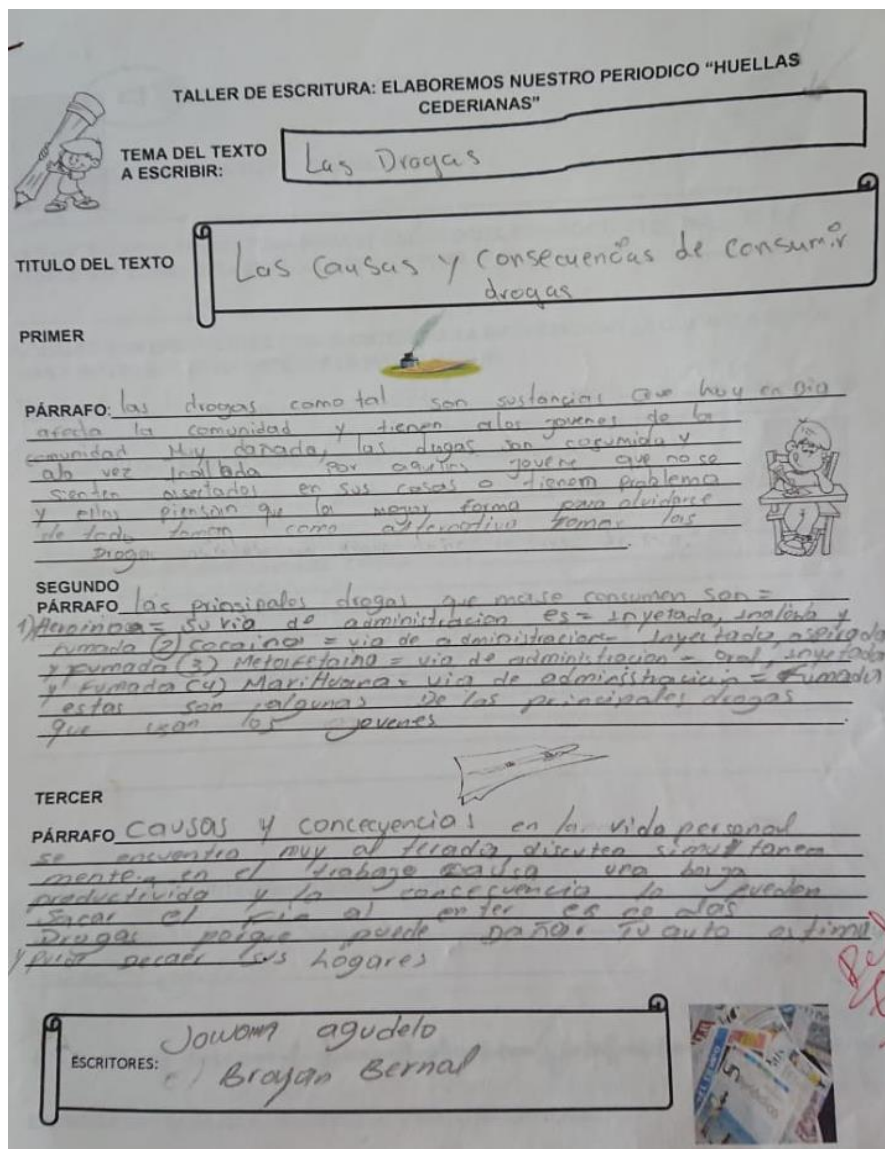 TALLER DE ESCRITURA: ELABOREMOS NUESTRO PERIODICO “HUELLAS
CEDERIANAS”
TEMA DEL TEXTO
A ESCRIBIR:
Las Drogas
TITULO DEL TEXTO
Las causas y consecuencias de consumir
drogas
PRIMER
PÁRRAFO: las drogas como tal son sustancias que hoy en Dia
afecta la comunidad y tienen alos jovenes de la
comunidad Muy dañada, las drogas son cosumida y
ala vez por aquellos jovene que no se
sienten asertados en sus casas o tienem problema
y ellos piensan que la mayor forma para olvidarse
de todo toman como alternativa tomar las
Droga
SEGUNDO
PÁRRAFO las prinsipales drogas que mase consumen son =
1) Heroinoa = Su via de administracion es = inyetada, inalada y
fumada (2) cocaina = via de administracion - inyectada, aspirada
y fumada (3) = via de administracion - oral, inyetada
y Fumada (4) MariHuana = via de administracicin = Fumada
estas son algunas De las principales drogas
que usan los jovenes
TERCER
PÁRRAFO causas y concecuencias en la vida personal
se encuentra muy al terada discuten simul tanea
mente, en el trabajo causa una baja
productivida y la concecuencia lo pueden
Sacar el al
Drogas porque puede Dañar Tu auto estima
y decaer sus hogares
ESCRITORES:
agudelo
Brayan Bernal